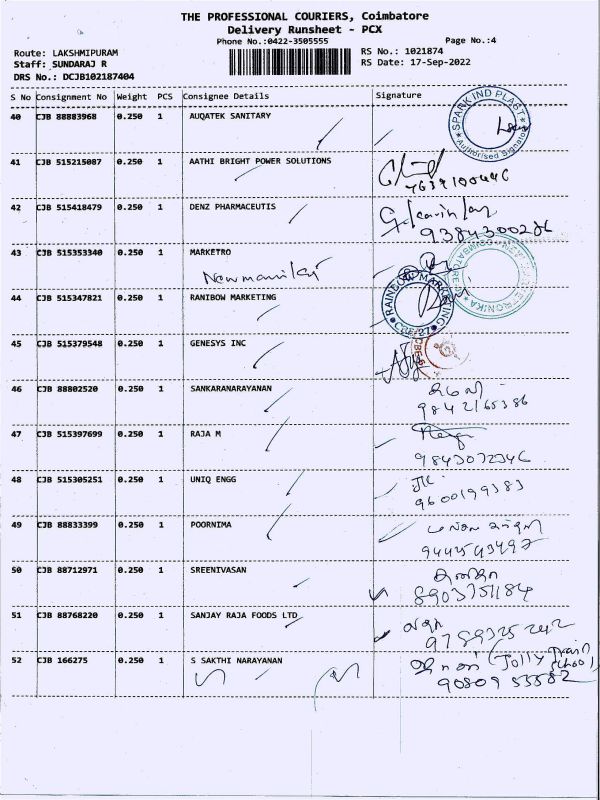 THE PROFESSIONAL COURIERS, Coimbatore
Delivery Runsheet - PCX
Phone No.:0422-3505555
Page No.:4
Route: LAKSHMIPURAM
RS No.: 1021874
Staff: SUNDARAJ R
RS Date: 17-Sep-2022
DRS No.: DCJB102187404
S No Consignment No Weight PCS Consignee Details Signature
40 CJB 88883968 0.250 1 AUQATEK SANITARY
SPARK IND PLAST
Authorised Signatory
41 CJB 515215087 0.250 1 AATHI BRIGHT POWER SOLUTIONS
42 CJB 515418479 0.250 1 DENZ PHARMACEUTIS
9384300286
43 CJB 515353340 0.250 1 MARKETRO
44 CJB 515347821 0.250 1 RANIBOW MARKETING
RAINBOW MARKETING
CBE-27
45 CJB 515379548 0.250 1 GENESYS INC
46 CJB 88802520 0.250 1 SANKARANARAYANAN
9842165386
47 CJB 515397699 0.250 1 RAJA M
9843072346
48 CJB 515305251 0.250 1 UNIQ ENGG
9600199383
49 CJB 88833399 0.250 1 POORNIMA
50 CJB 88712971 0.250 1 SREENIVASAN
8903751184
51 CJB 88768220 0.250 1 SANJAY RAJA FOODS LTD
9789325242
52 CJB 166275 0.250 1 S SAKTHI NARAYANAN
9080953582